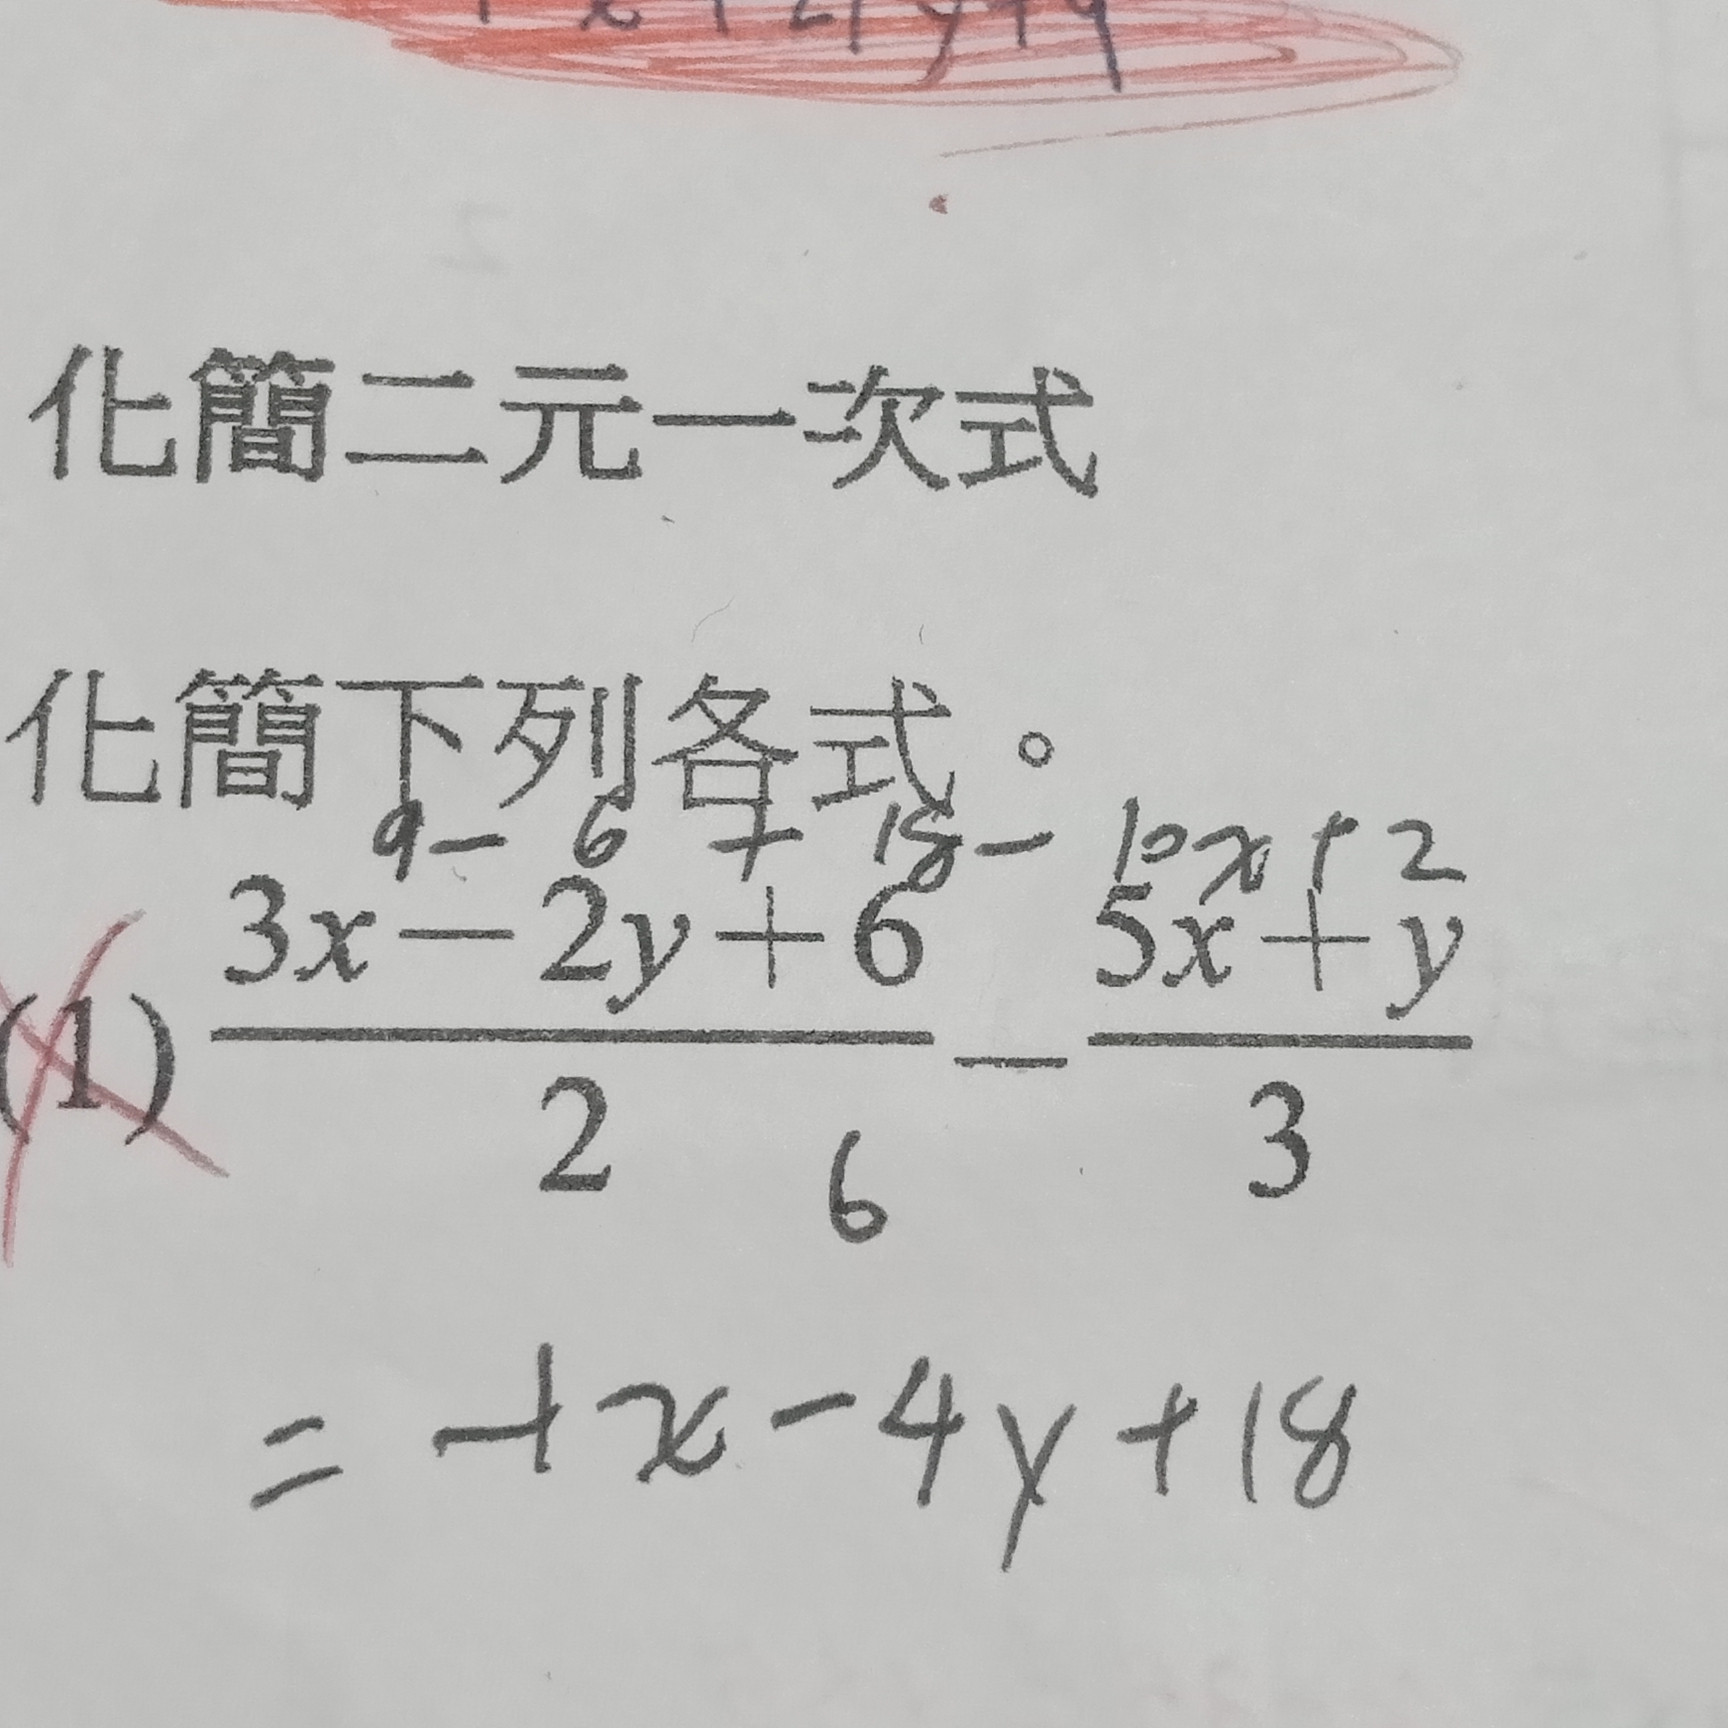 x+21y+9
化簡二元一次式
化簡下列各式。
9- 6 + 18- 10x+2
(1) 3x-2y+6 / 2 - 5x+y / 3
6
= -1x-4y+18